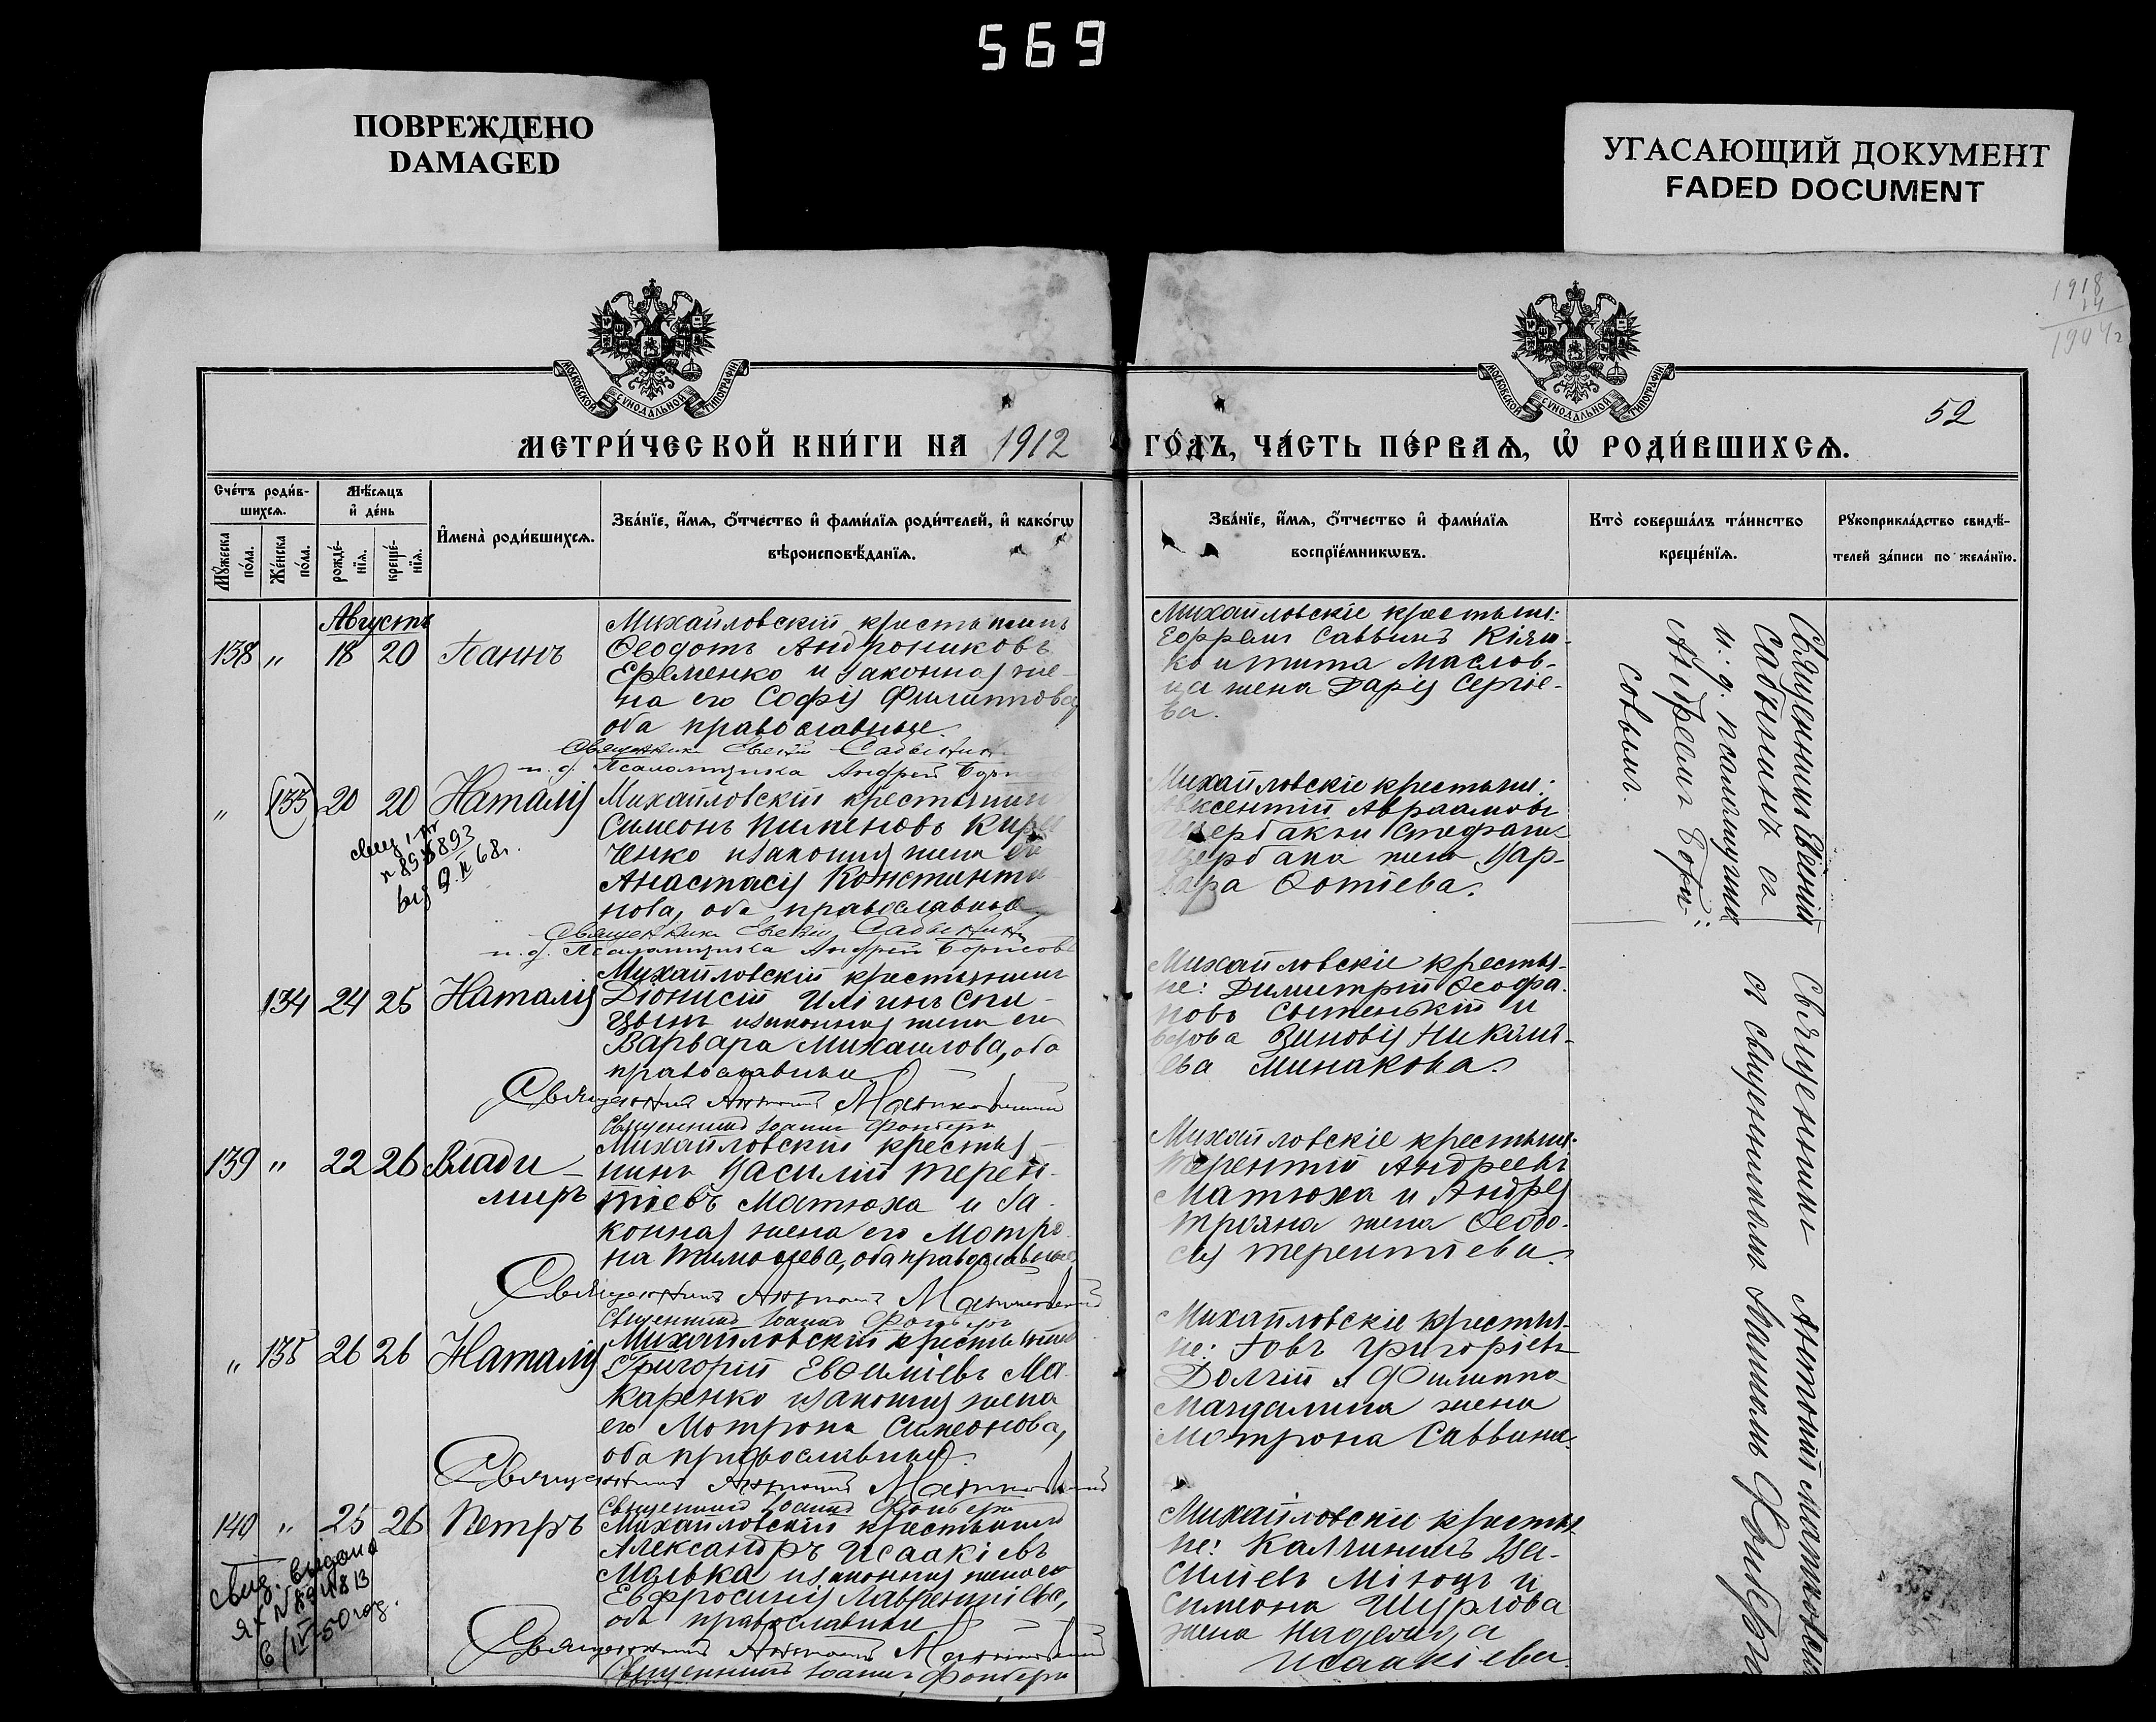 569
ПОВРЕЖДЕНО
DAMAGED
УГАСАЮЩИЙ ДОКУМЕНТ
FADED DOCUMENT
1918
14
1904
52
МОСКОВСКОЙ СѴНОДАЛЬНОЙ ТИПОГРАФІИ
МОСКОВСКОЙ СѴНОДАЛЬНОЙ ТИПОГРАФІИ
МЕТРИ́ЧЕСКОЙ КНИ́ГИ НА 1912 ГО́ДЪ, ЧА́СТЬ ПЕ́РВАѦ, Ѡ҆ РОДИ́ВШИХСѦ.
Сче́тъ роди́в-
шихсѧ.
Мꙋ́жеска по́ла.
Же́нска по́ла.
Мѣ́сѧцъ
и҆ де́нь
рожде́-
нїѧ.
креще́-
нїѧ.
И҆мена̀ роди́вшихсѧ.
Зва́нїе, и҆́мѧ, ѻ҆́тчество и҆ фами́лїѧ роди́телей, и҆ како́гѡ
вѣроисповѣ́данїѧ.
Зва́нїе, и҆́мѧ, ѻ҆́тчество и҆ фами́лїѧ
воспрїе́мникѡвъ.
Кто̀ соверша́лъ та́инство
креще́нїѧ.
Рꙋкоприкла́дство свидѣ́-
телей за́писи по жела́нїю.
Августъ
138 " 18 20 Паннъ
Михайловскій крестьянинъ
Ѳеодотъ Андрониковъ
Еременко и законная же-
на его Софія Филиппова
оба православные.
Священникъ Евгеній Садылинъ
и. д. Псаломщика Андрей Борисов
Михайловскіе крестьян:
Ефремъ Саввинъ Кіяш-
ко и Тита Маслов-
ца жена Дарія Сергіе-
ва.
Священникъ Евгеній
Садылинъ съ
и. д. псаломщика
Андреемъ Бори-
совымъ.
" (133) 20 20 Наталія
Михайловскій крестьянин
Симеонъ Пименовъ Кири
ченко и законная жена его
Анастасія Константи-
нова, оба православные
Священникъ Евгеній Садылинъ
и. д. Псаломщика Андрей Борисовъ
9.II 68г.
Михайловскіе крестьян:
Авксентій Авраамовъ
Щербакъ и Стефана
Щербака жена Вар-
вара Фотіева.
134 24 25 Наталія
Михайловскій крестьянинъ
Діонисій Иліинъ Спи-
цынъ и законная жена его
Варвара Михаилова, оба
православные
Священникъ Антоній Матиковскій
Священникъ Іоаннъ Фонберъ
Михайловскіе крестья-
не: Димитрій Ѳеофа-
новъ Сытенькій и
вдова Зиновія Никола-
ева Минакова.
Священникъ Антоній
съ священникомъ Іоанномъ
139 " 22 26 Влади-
миръ
Михайловскій крестья-
нинъ Василій Терен-
тіевъ Матюха и за-
конная жена его Мотро-
на Тимоѳеева, оба православные
Священникъ Антоній Матиковскій
Священникъ Іоаннъ Фонберъ
Михайловскіе крестьян:
Терентій Андреевъ
Матюха и Андрея
Трояна жена Ѳеодо-
сія Терентіева.
" 135 26 26 Наталія
Михайловскій крестьянинъ
Григорій Евѳиміевъ Ма-
каренко и законная жена
его Мотрона Симеонова,
оба православные
Священникъ Антоній Матиковскій
Священникъ Іоаннъ Фонберъ
Михайловскіе крестья-
не: Іовъ Григорьевъ
Долгій и Филиппа
Магдалина жена
Мотрона Саввина.
140 " 25 26 Петръ
Михайловскій крестьянинъ
Александръ Исаакіевъ
Малька и законная жена его
Евфросинія Лаврентіева,
оба православные
Священникъ Антоній Матиковскій
Священникъ Іоаннъ Фонберъ
свид. выдано
6/IV-50 год.
Михайловскіе крестья-
не: Каллиникъ Ва-
силіевъ и
Симеона Шурлова
жена Надежда
Исаакіева.